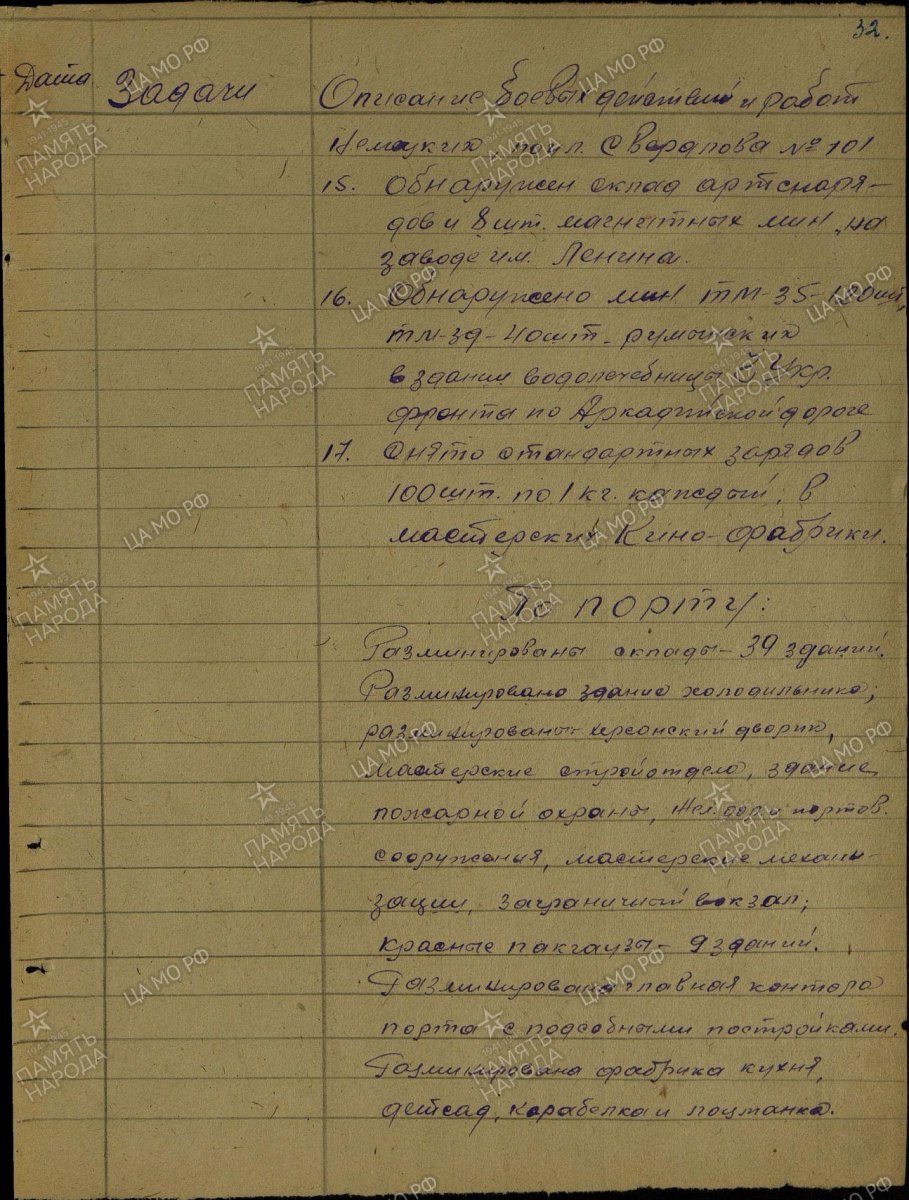 32.
Дата Задачи Описание боевых действий и работ
Немецких по ул. Свердлова № 101
15. Обнаружен склад артснаря-
дов и 8 шт. магнитных мин на
заводе им. Ленина.
16. Обнаружено мин ТМ-35-
ТМ-39-40шт. румынских
в здании водолечебницы 3 Укр.
фронта по Аркадийской дороге
17. Снято стандартных зарядов
100 шт. по 1 кг. каждый, в
мастерских Кино-фабрики.
По порту:
Разминированы склады - 39 зданий.
Разминировано здание холодильника,
разминированы херсонский дворик,
мастерские стройотдела, здание
пожарной охраны, жел.дор и портов.
сооружения, мастерские механи-
зации, заграничный вокзал,
красные пакгаузы - 9 зданий.
Разминирована главная контора
порта с подсобными постройками.
Разминирована фабрика кухня,
детсад, карабелка и лоцманка.
ЦА МО РФ
1941-1945
ПАМЯТЬ
НАРОДА